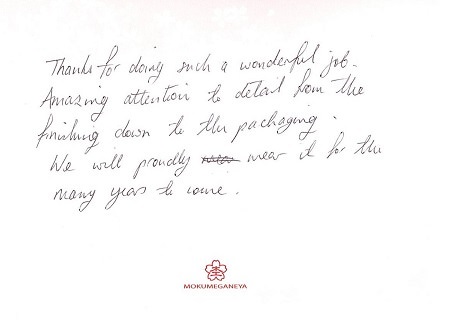 Thanks for doing such a wonderful job.
Amazing attention to detail from the
finishing down to the packaging.
We will proudly wear it for the
many years to come.
MOKUMEGANEYA